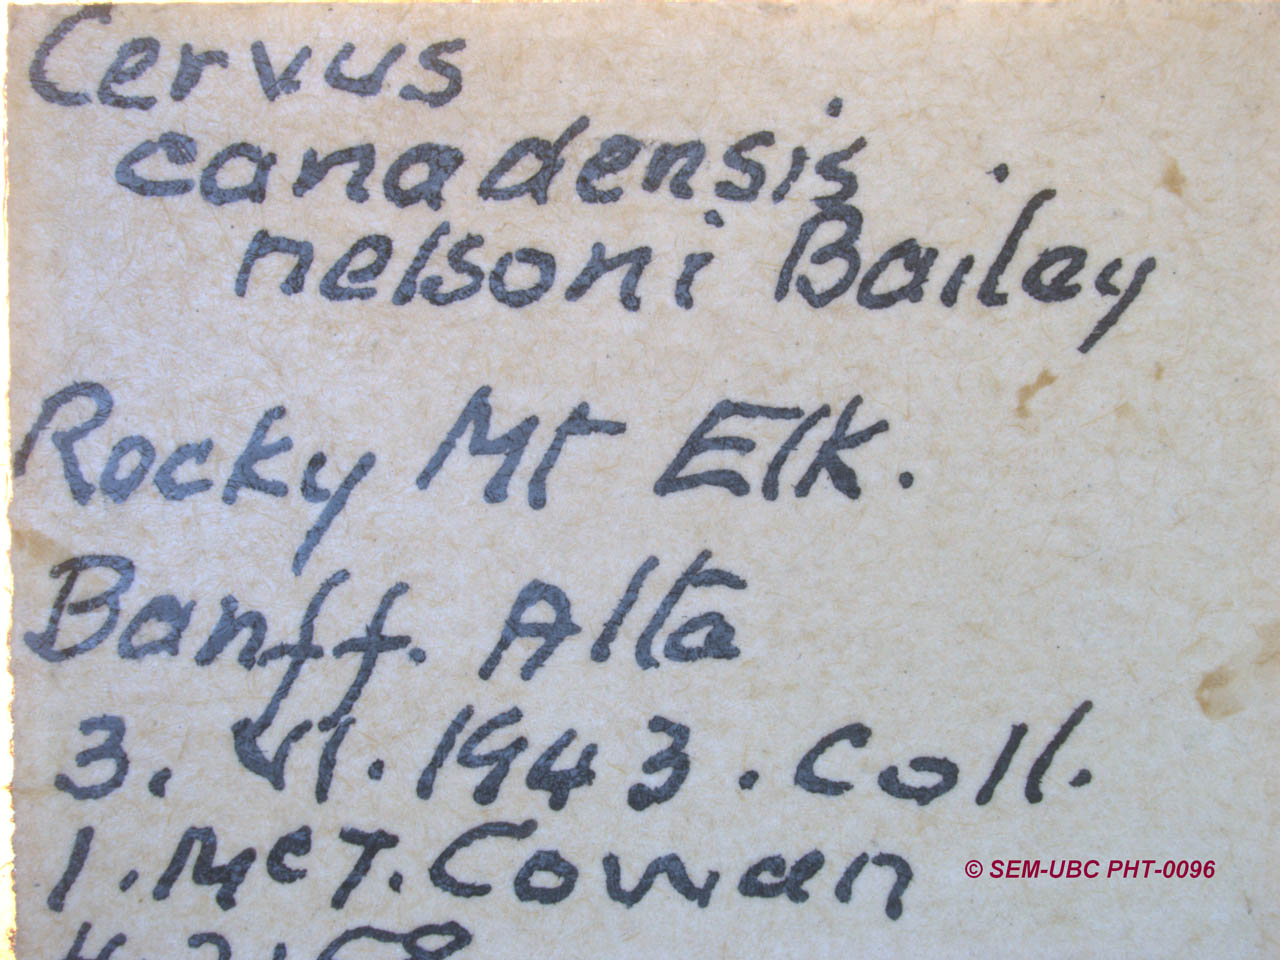 Cervus
canadensis
nelsoni Bailey
Rocky Mt Elk.
Banff. Alta
3. VI. 1943. Coll.
I. McT. Cowan
© SEM-UBC PHT-0096